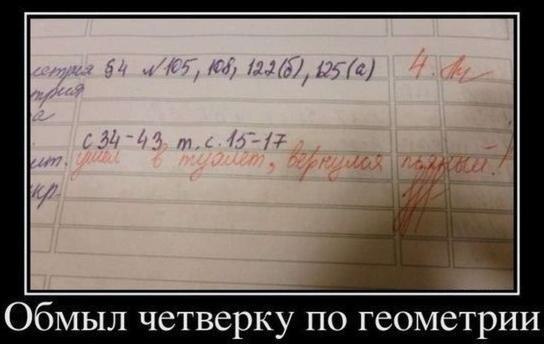 §4 №105, 108, 122(б), 125(а) 4.
с 34-43 т. с. 15-17
ушёл в туалет, вернулся пьяный!
Обмыл четверку по геометрии